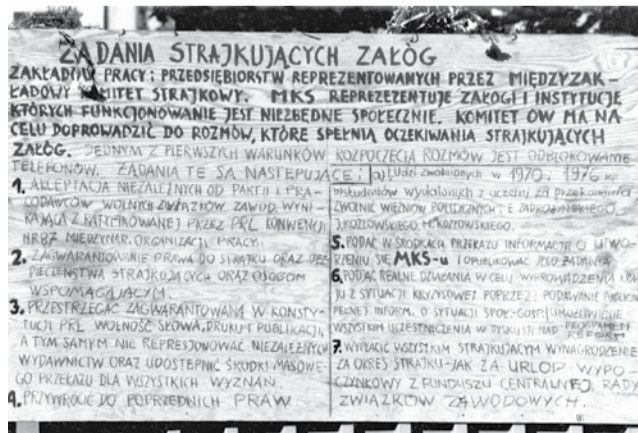 ŻĄDANIA STRAJKUJĄCYCH ZAŁÓG
ZAKŁADÓW PRACY I PRZEDSIĘBIORSTW REPREZENTOWANYCH PRZEZ MIĘDZYZAK-
ŁADOWY KOMITET STRAJKOWY. MKS REPREZEZENTUJE ZAŁOGI I INSTYTUCJE,
KTÓRYCH FUNKCJONOWANIE JEST NIEZBĘDNE SPOŁECZNIE. KOMITET ÓW MA NA
CELU DOPROWADZIĆ DO ROZMÓW, KTÓRE SPEŁNIĄ OCZEKIWANIA STRAJKUJĄCYCH
ZAŁÓG. JEDNYM Z PIERWSZYCH WARUNKÓW ROZPOCZĘCIA ROZMÓW JEST ODBLOKOWANIE
TELEFONÓW. ŻĄDANIA TE SĄ NASTĘPUJĄCE:
1. AKCEPTACJA NIEZALEŻNYCH OD PARTII I PRA-
CODAWCÓW WOLNYCH ZWIĄZKÓW ZAWOD. WYNI-
KAJĄCA Z RATYFIKOWANEJ PRZEZ PRL KONWENCJI
NR 87 MIĘDZYNAR. ORGANIZACJI PRACY.
2. ZAGWARANTOWANIE PRAWA DO STRAJKU ORAZ BEZ-
PIECZEŃSTWA STRAJKUJĄCYCH ORAZ OSOBOM
WSPOMAGAJĄCYM.
3. PRZESTRZEGAĆ ZAGWARANTOWANĄ W KONSTY-
TUCJI PRL WOLNOŚĆ SŁOWA, DRUKU I PUBLIKACJI,
A TYM SAMYM NIE REPRESJONOWAĆ NIEZALEŻNYCH
WYDAWNICTW ORAZ UDOSTĘPNIĆ ŚRODKI MASOWE-
GO PRZEKAZU DLA WSZYSTKICH WYZNAŃ.
4. PRZYWRÓCIĆ DO POPRZEDNICH PRAW
a) Ludzi zwolnionych w 1970 i 1976
studentów wydalonych z uczelni za przekonania
ZWOLNIĆ WIĘŹNIÓW POLITYCZNYCH: E. ZADROŻYŃSKIEGO
J. KOZŁOWSKIEGO, M. KOZŁOWSKIEGO.
5. PODAĆ W ŚRODKACH PRZEKAZU INFORMACJE O UTWO-
RZENIU SIĘ MKS-u I OPUBLIKOWAĆ JEGO ŻĄDANIA
6. PODAĆ REALNE DZIAŁANIA W CELU WYPROWADZENIA KRA-
JU Z SYTUACJI KRYZYSOWEJ POPRZEZ: PODAWANIE PUBLICZ.
PEŁNEJ INFORM. O SYTUACJI SPOŁ.-GOSP. UMOŻLIWIENIE
WSZYSTKIM UCZESTNICZENIA W DYSKUSJI NAD PROGRAMEM
REFORM
7. WYPŁACIĆ WSZYSTKIM STRAJKUJĄCYM WYNAGRODZENIE
ZA OKRES STRAJKU-JAK ZA URLOP WYPO-
CZYNKOWY Z FUNDUSZU CENTRALNEJ RADY
ZWIĄZKÓW ZAWODOWYCH.